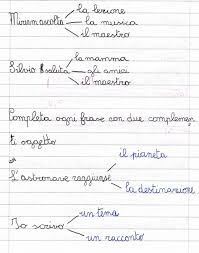 la lezione
Miriam ascolta la musica
il maestro
la mamma
Silvio saluta gli amici
il maestro
Completa ogni frase con due complemen
ti oggetto
il pianeta
L'astronave raggiunse
la destinazione
un tema
Io scrivo
un racconto